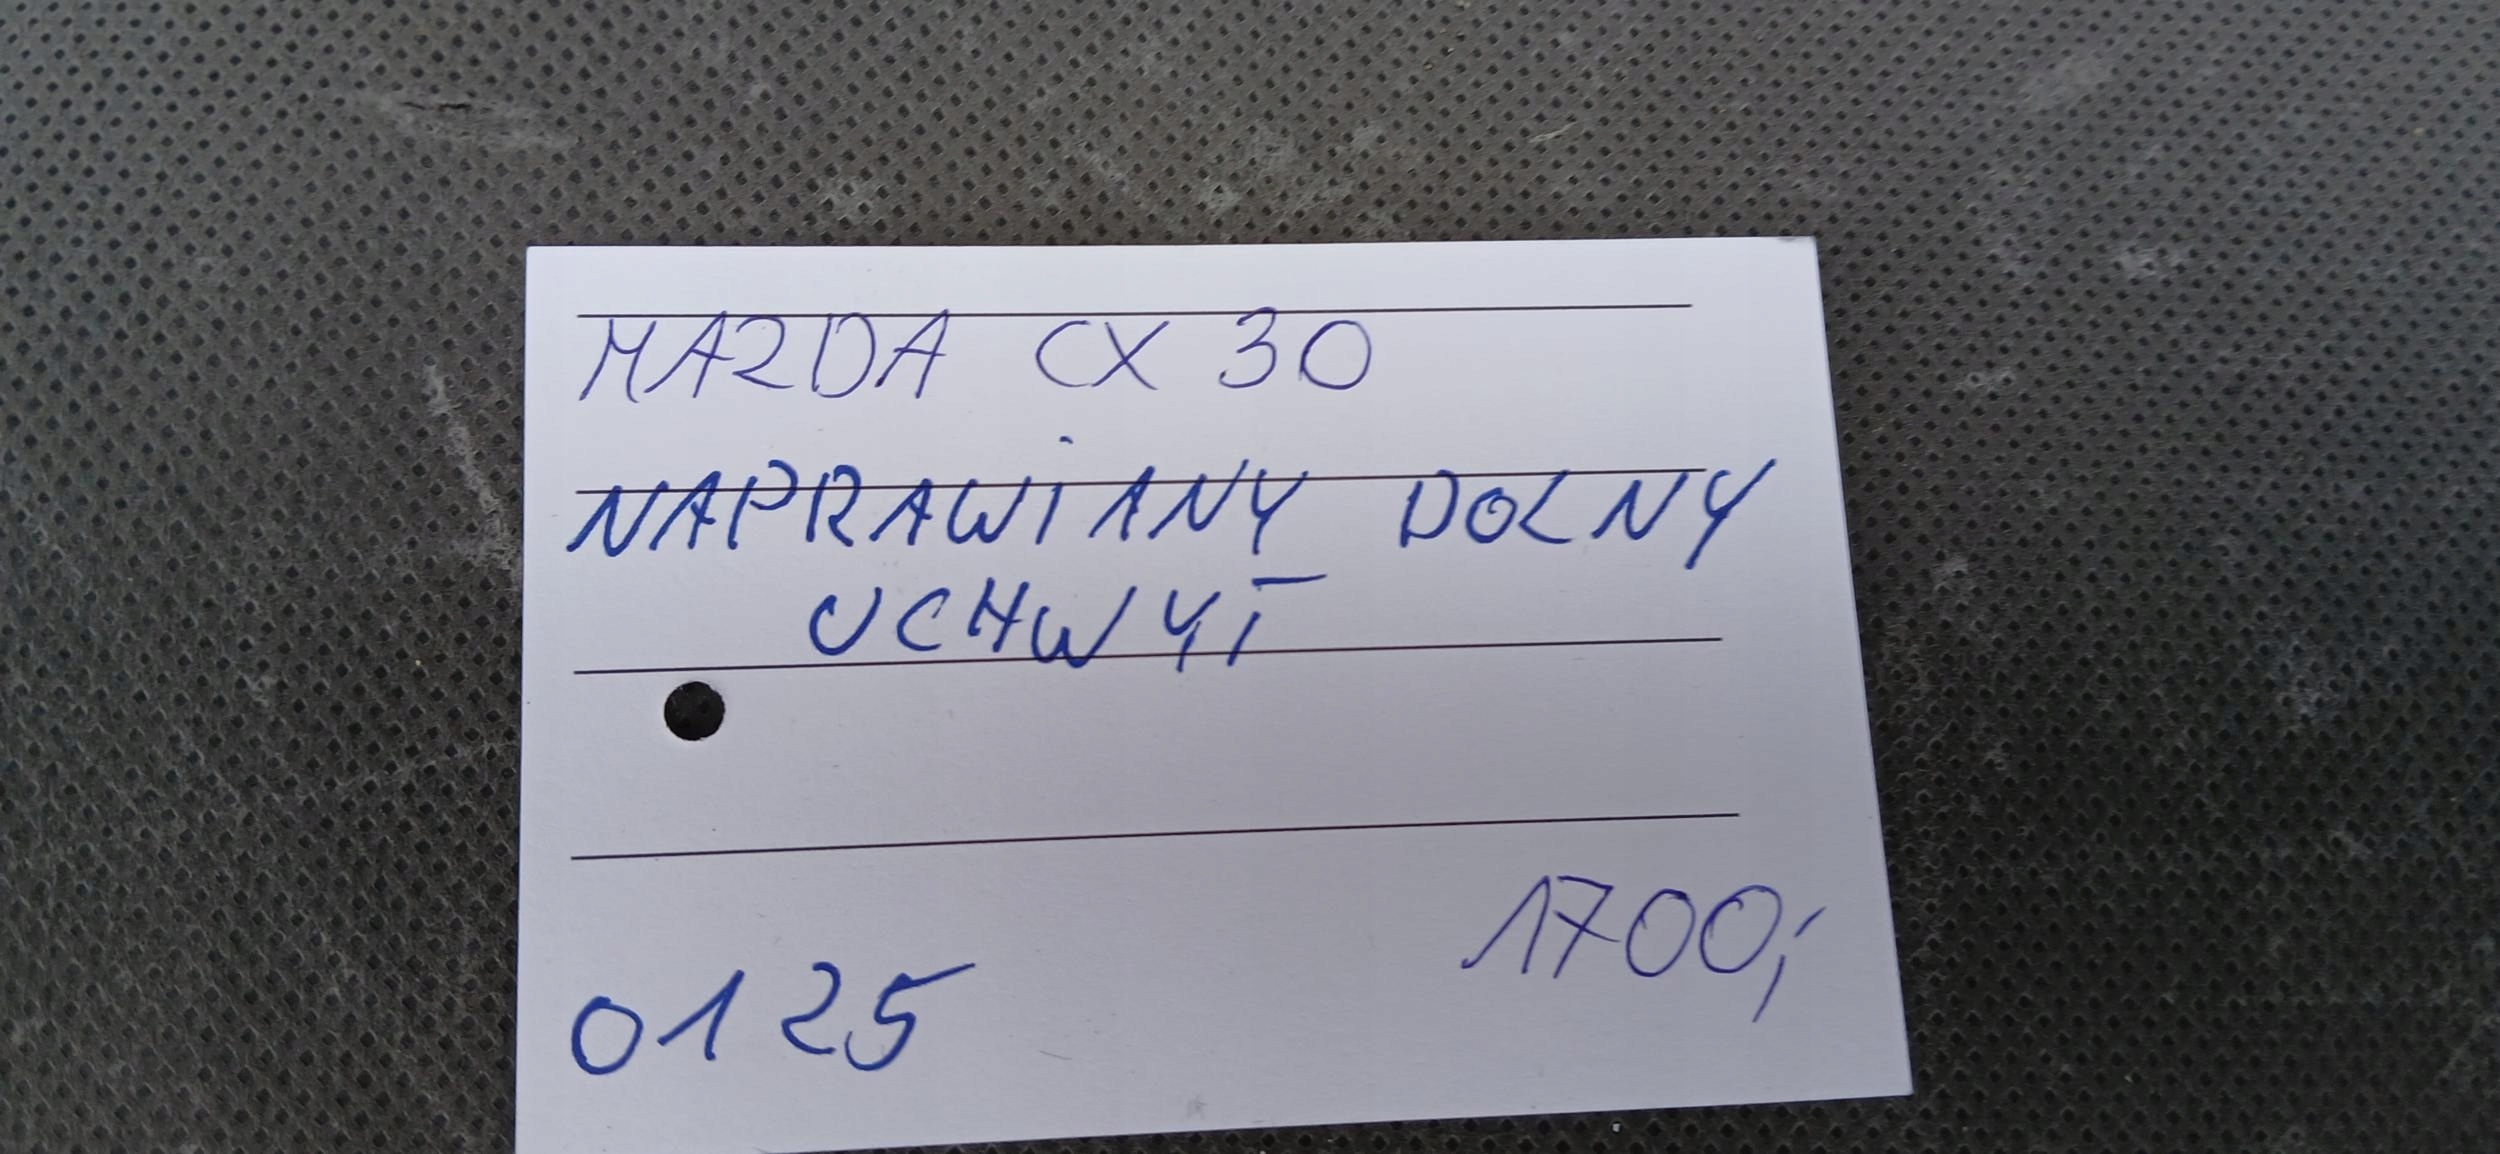 MAZDA CX 30
NAPRAWIANY DOLNY
UCHWYT
1700,-
0125